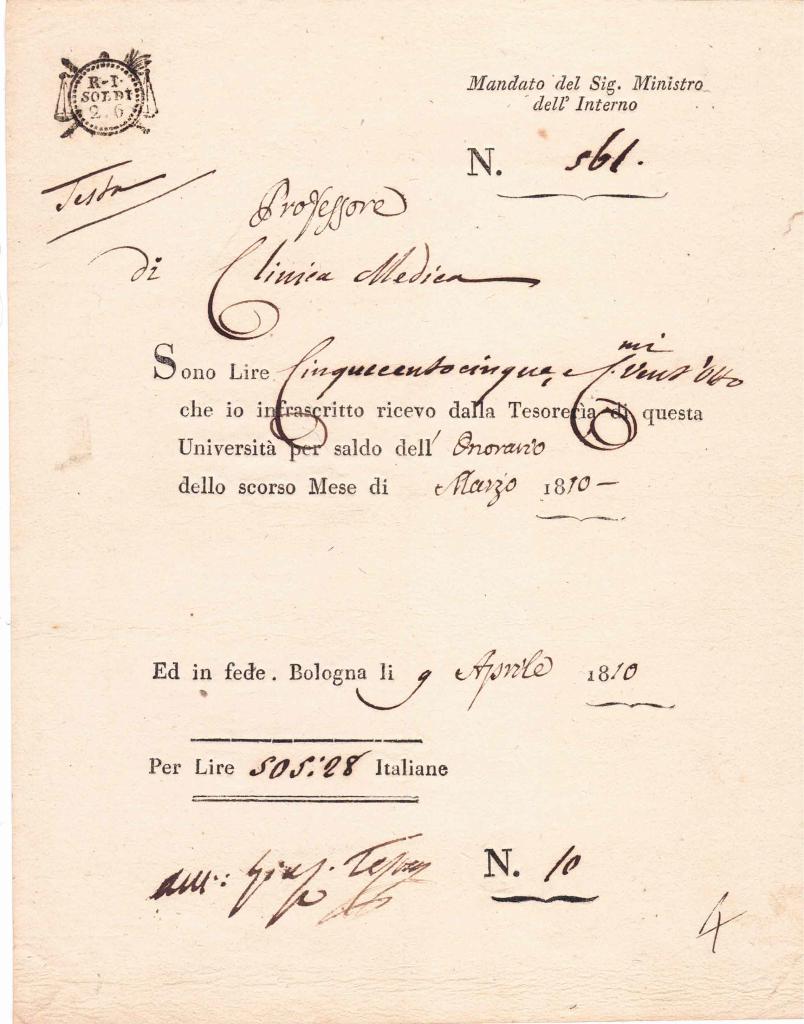 R-I-
SOLDI
2. 6
Mandato del Sig. Ministro
dell' Interno
N. 561.
Testa
Professore
di Clinica Medica
Sono Lire Cinquecentocinque, e C.mi Vent'Otto
che io infrascritto ricevo dalla Tesorerìa di questa
Università per saldo dell' Onorario
dello scorso Mese di Marzo 1810 —
Ed in fede. Bologna li 9 Aprile 1810
Per Lire 505:28 Italiane
N. 10
4